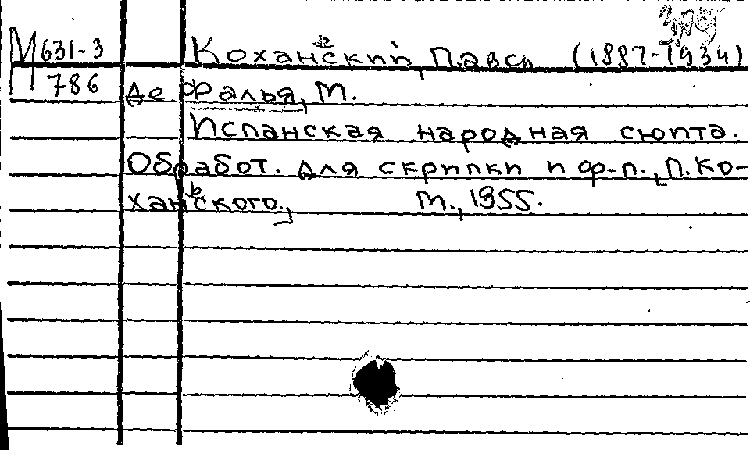 М631-3 Коханьский, Павел (1887-1934)
786 де Фалья, М.
Испанская народная сюита.
Обработ. для скрипки и ф-п. П. Ко-
ханьского. М., 1955.